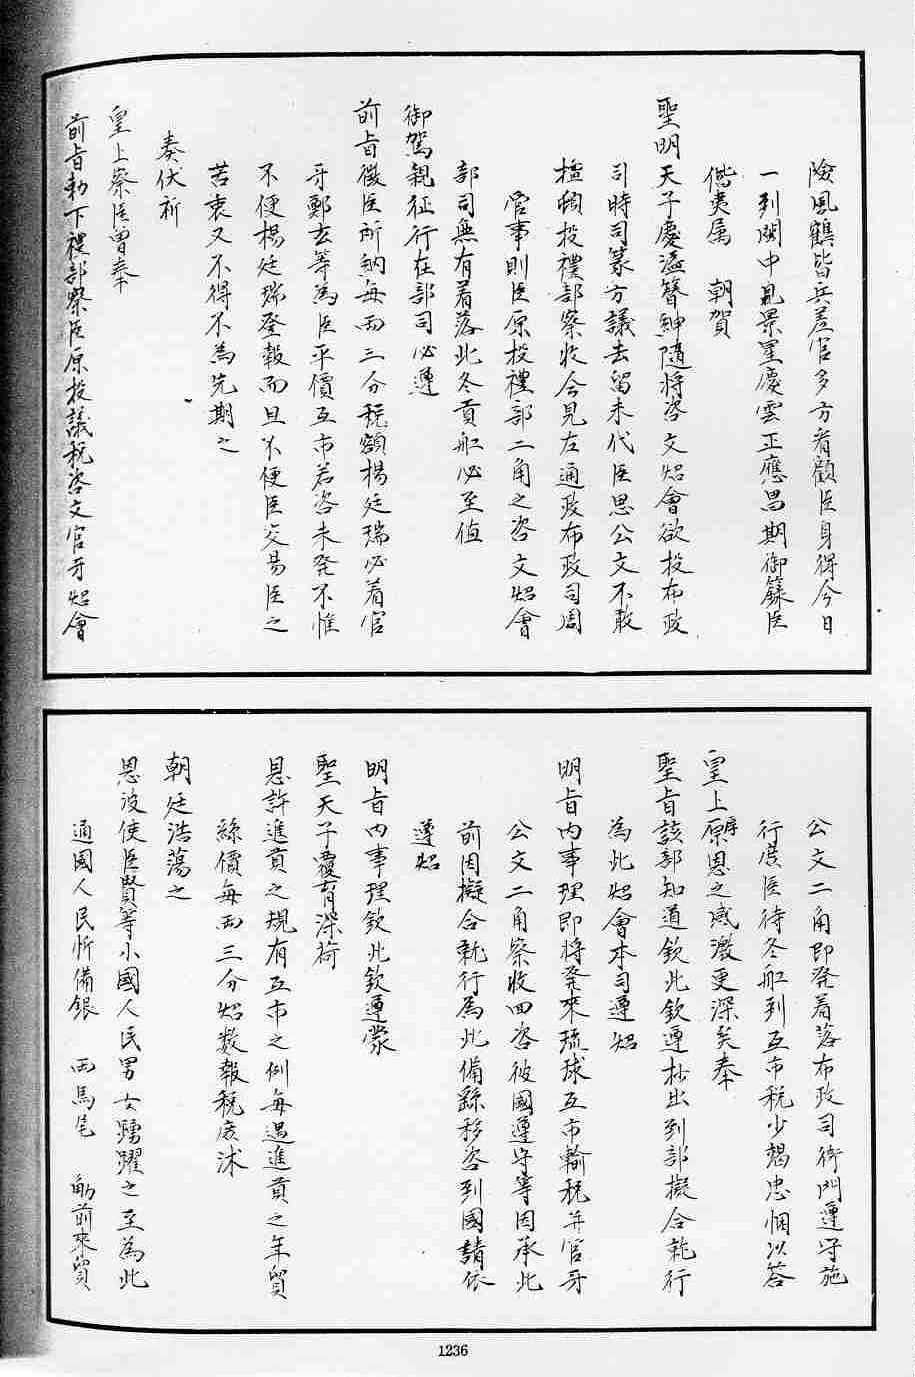 險風鶴皆兵差官多方看顧臣身得今日
一到閩中見景星慶雲正應昌期御籙臣
偕夷属　朝賀
聖明天子慶溢簪紳隨將咨文知會欲投布政
司時司篆方議去留未代臣思公文不敢
擅頓投禮部察收今見左通政布政司周
官事則臣原投禮部二角之咨文知會
部司無有着落此冬貢舡必至值
御駕親征行在部司必遵
前旨徵臣所納每両三分税額楊廷瑞必着官
牙鄭玄等為臣平價互市若咨未発不惟
不便楊廷瑞登報而且不便臣交易臣之
苦衷又不得不為先期之
奏伏祈
皇上察臣曾奉
前旨勅下禮部察臣原投議税咨文官牙知會
公文二角即発着落布政司衙門遵守施
行庶臣待冬舡到互市税少竭忠悃以答
皇上厚恩之感激更深矣奉
聖旨該部知道欽此欽遵抄出到部擬合就行
為此知會本司遵知
明旨内事理即將発來琉球互市輸税并官牙
公文二角察收回咨彼國遵守等因承此
前因擬合就行為此備繇移咨到國請依
遵知
明旨内事理欽此欽遵蒙
聖天子覆育深荷
恩許進貢之規有互市之例每遇進貢之年買
絲價每両三分知数報税庶沐
朝廷浩蕩之
恩波使臣賢等小國人民男女踴躍之至為此
通國人民忻備銀　両馬尾　觔前來買
1236